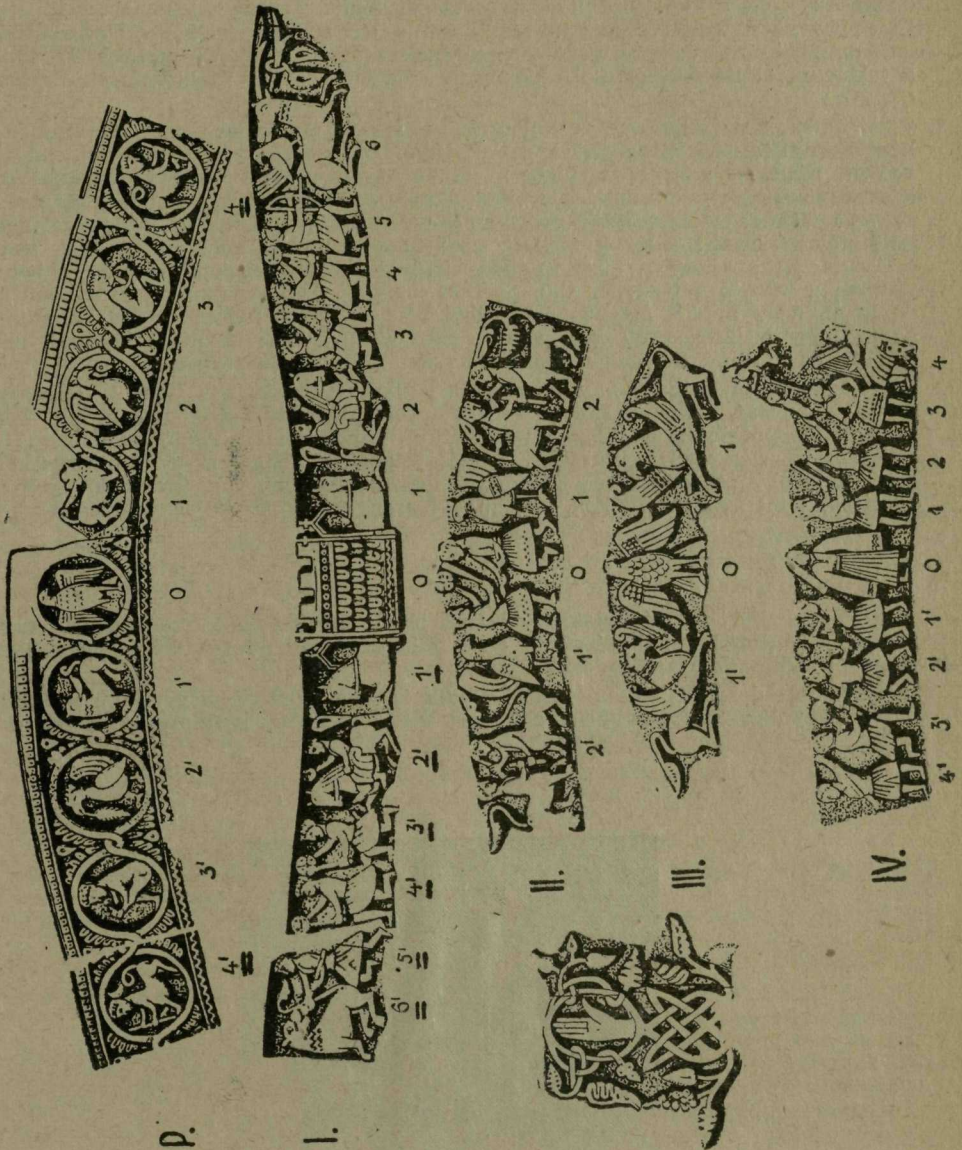 P.
4' 3' 2' 1' 0 1 2 3 4
I.
6' 5' 4' 3' 2' 1' 0 1 2 3 4 5 6
II.
2' 1' 0 1 2
III.
1' 0 1
IV.
4' 3' 2' 1' 0 1 2 3 4